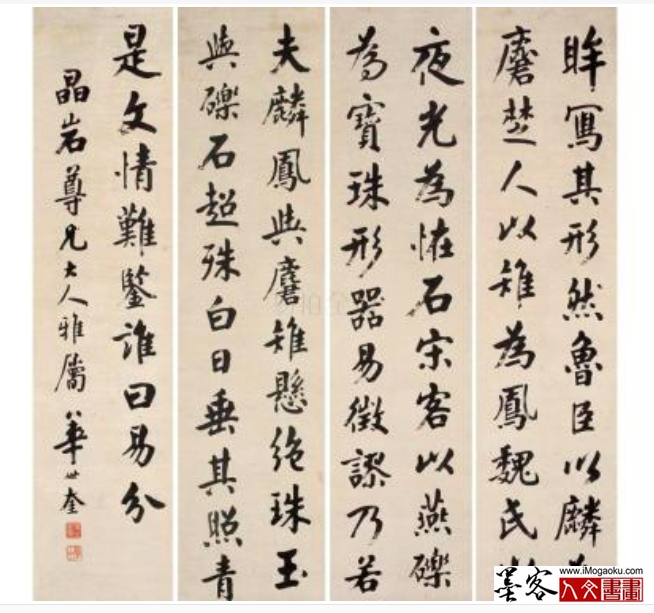 眸寫其形然魯臣以麟
麏楚人以雉為鳳魏民
夜光為恠石宋客以燕礫
為寶珠形器易徵謬乃若
夫麟鳳與麏雉懸絕珠玉
與礫石超殊白日垂其照青
是文情難鑒誰曰易分
晶岩尊兄大人雅屬 華世奎
www.iMogaoku.com
墨客人文書畫